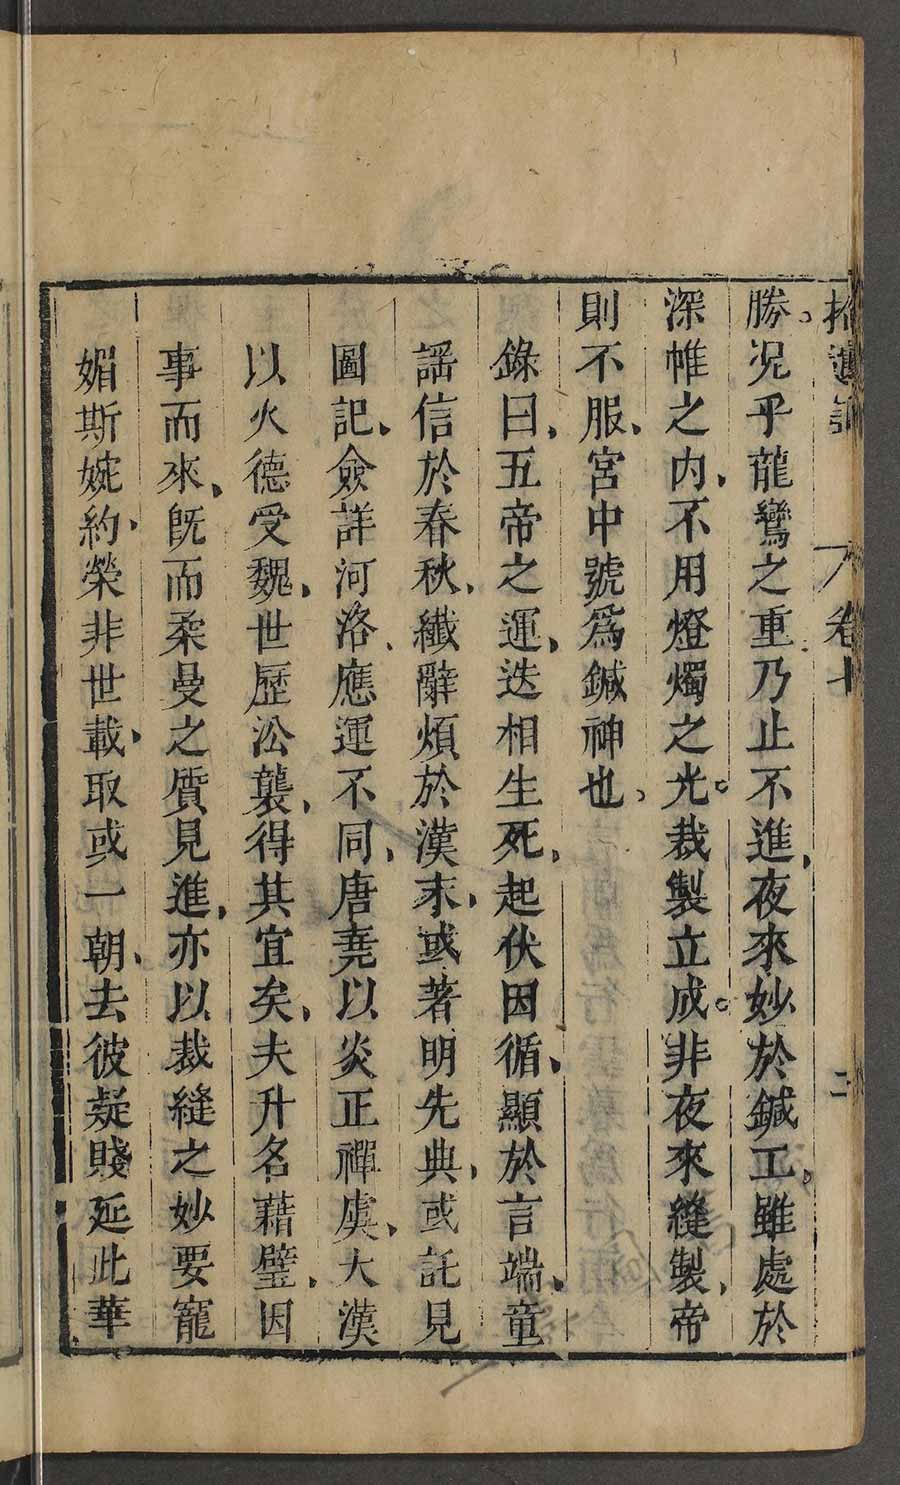 拾遺記 卷七 二
勝。况乎龍鸞之重乃止不進、夜來妙於鍼工。雖處於
深帷之内、不用燈燭之光。裁製立成。非夜來縫製、帝
則不服、宮中號爲鍼神也、
錄曰、五帝之運、迭相生死、起伏因循、顯於言端、童
謡信於春秋、纖辭煩於漢末、或著明先典、或託見
圖記、僉詳河洛、應運不同、唐堯以炎正禪虞、大漢
以火德受魏、世歷㳂襲、得其宜矣、夫升名藉璧、因
事而來、旣而柔曼之質見進、亦以裁縫之妙要寵
媚斯婉約、榮非世載、取或一朝、去彼疑賤延此華